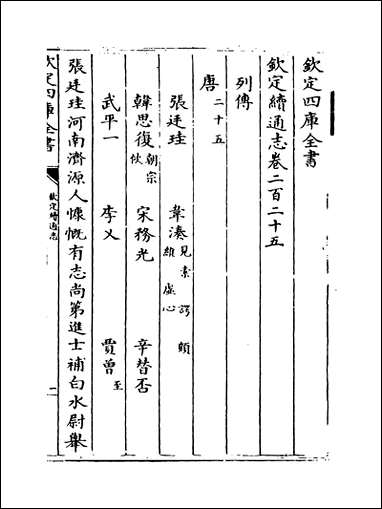 欽定四庫全書
欽定續通志卷二百二十五
列傳
唐二十五
張廷珪 韋湊見素 諤 顗 維 虛心
韓思復朝宗 佽 宋務光 辛替否
武平一 李乂 賈曾至
張廷珪河南濟源人慷慨有志尚第進士補白水尉舉
欽定四庫全書 欽定續通志 一